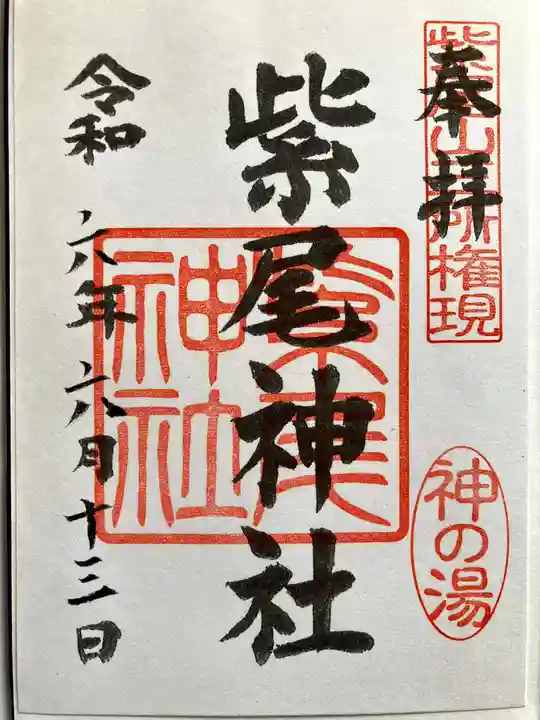 奉拝
紫尾山三所権現
神の湯
紫尾神社
紫尾神社
令和六年六月十三日